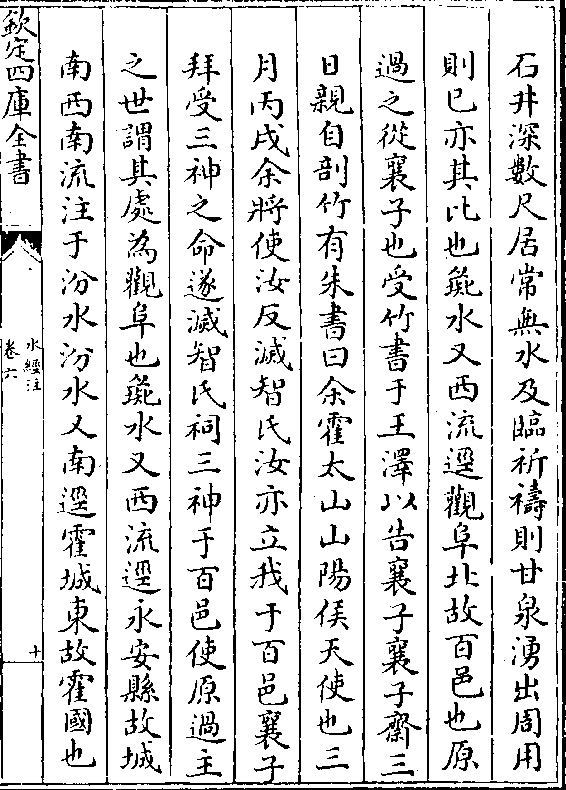 石井深數尺居常無水及臨祈禱則甘泉湧出周用
則已亦其比也彘水又西流逕觀阜北故百邑也原
過之從襄子也受竹書于王澤以告襄子襄子齋三
日親自剖竹有朱書曰余霍太山山陽侯天使也三
月丙戌余將使汝反滅智氏汝亦立我于百邑襄子
拜受三神之命遂滅智氏祠三神于百邑使原過主
之世謂其處為觀阜也彘水又西流逕永安縣故城
南西南流注于汾水汾水又南逕霍城東故霍國也
欽定四庫全書
水經注
卷六
十